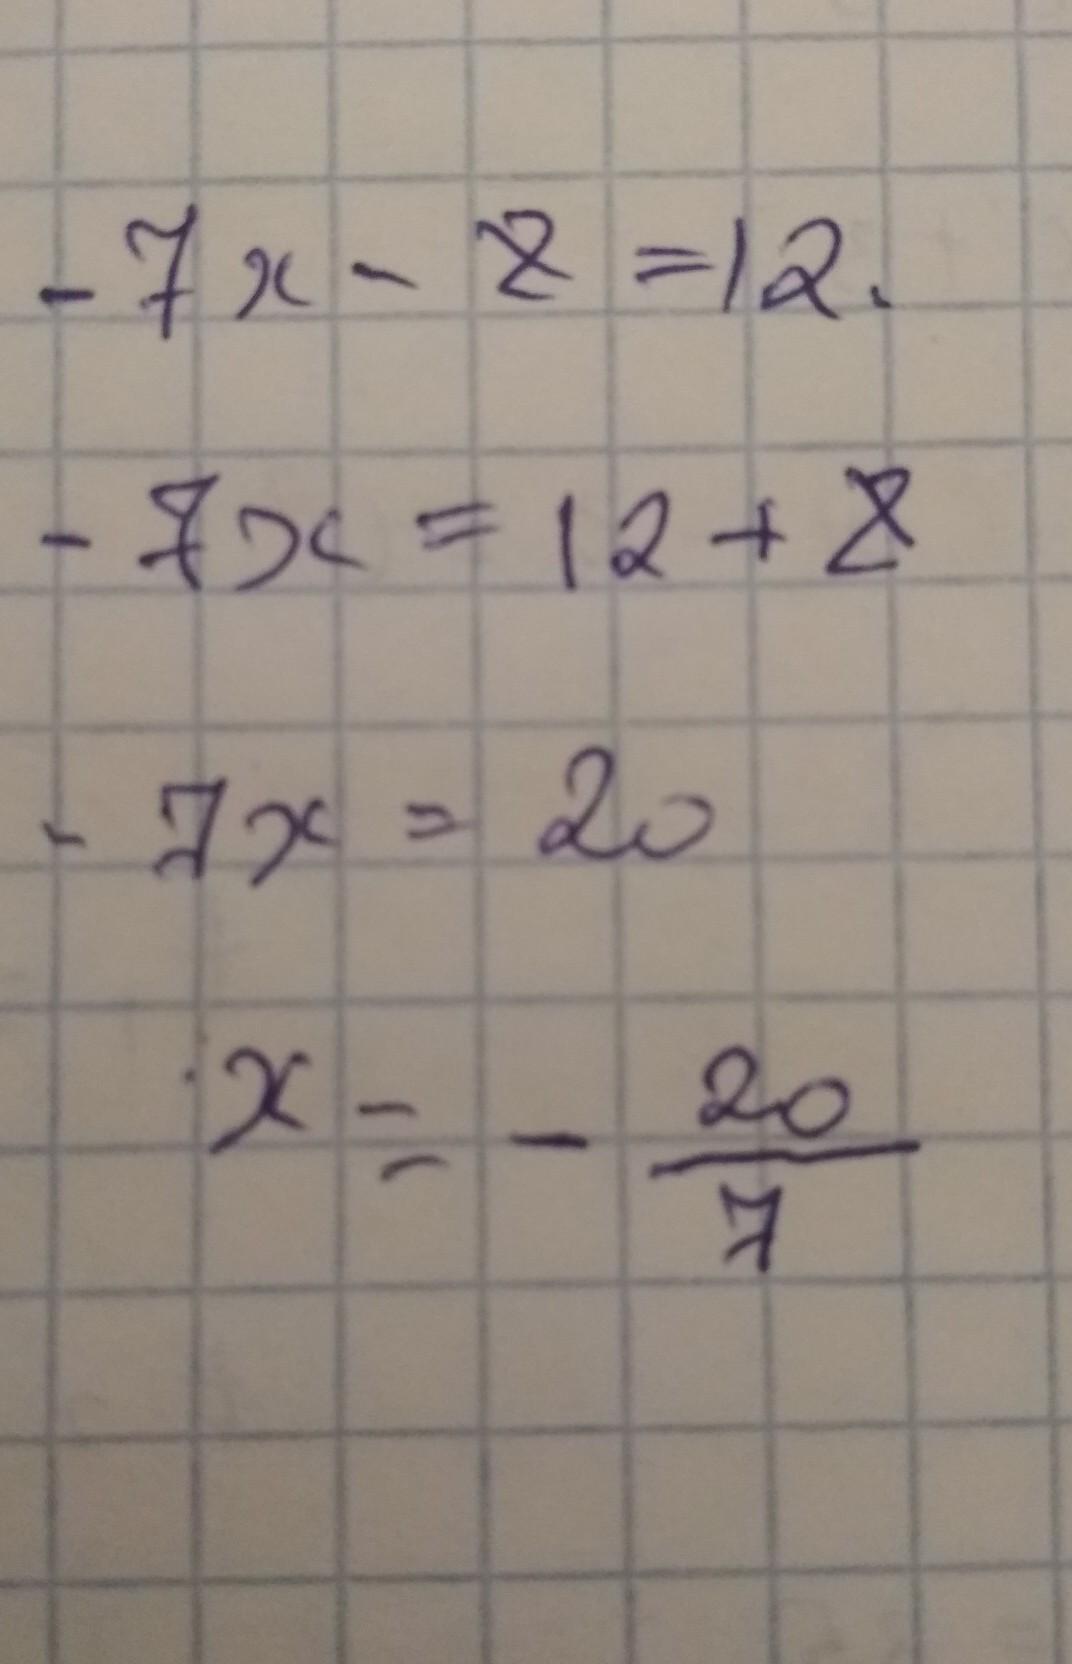 -7x - 8 = 12.
-7x = 12 + 8
-7x = 20
x = - 20/7